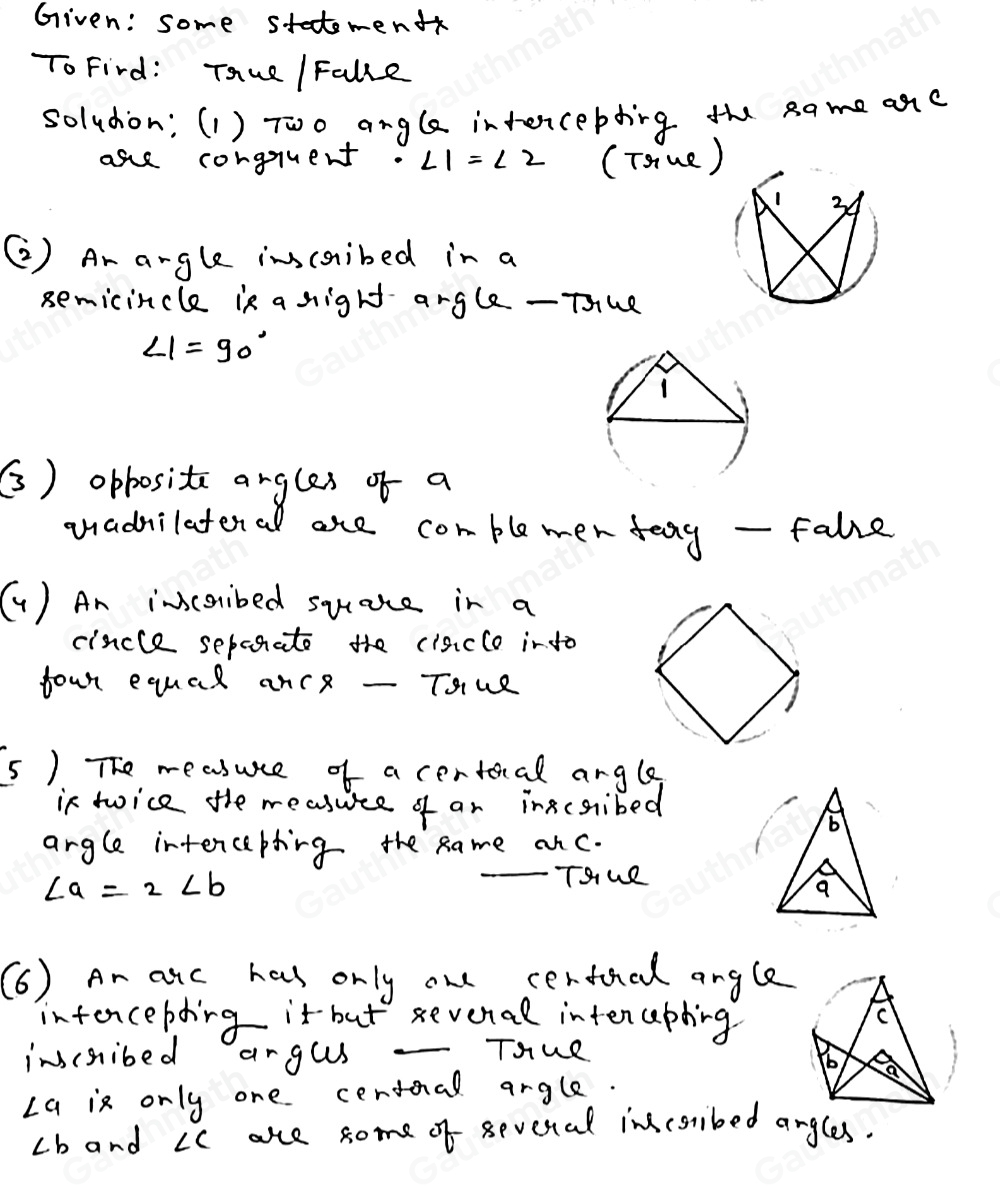 Given: some statements
To Find: True / False
Solution: (1) Two angle intercepting the same arc
are congruent . ∠1 = ∠2 (True)
1 2
(2) An angle inscribed in a
semicircle is a right angle — True
∠1 = 90°
1
(3) opposite angles of a
quadrilateral are complementary — False
(4) An inscribed square in a
circle separate the circle into
four equal arcs — True
(5) The measure of a central angle
is twice the measure of an inscribed
angle intercepting the same arc.
∠a = 2 ∠b — True
b
a
(6) An arc has only one central angle
intercepting it but several intercepting
inscribed angles — True
∠a is only one central angle.
∠b and ∠c are some of several inscribed angles.
c
b a
Gauthmath